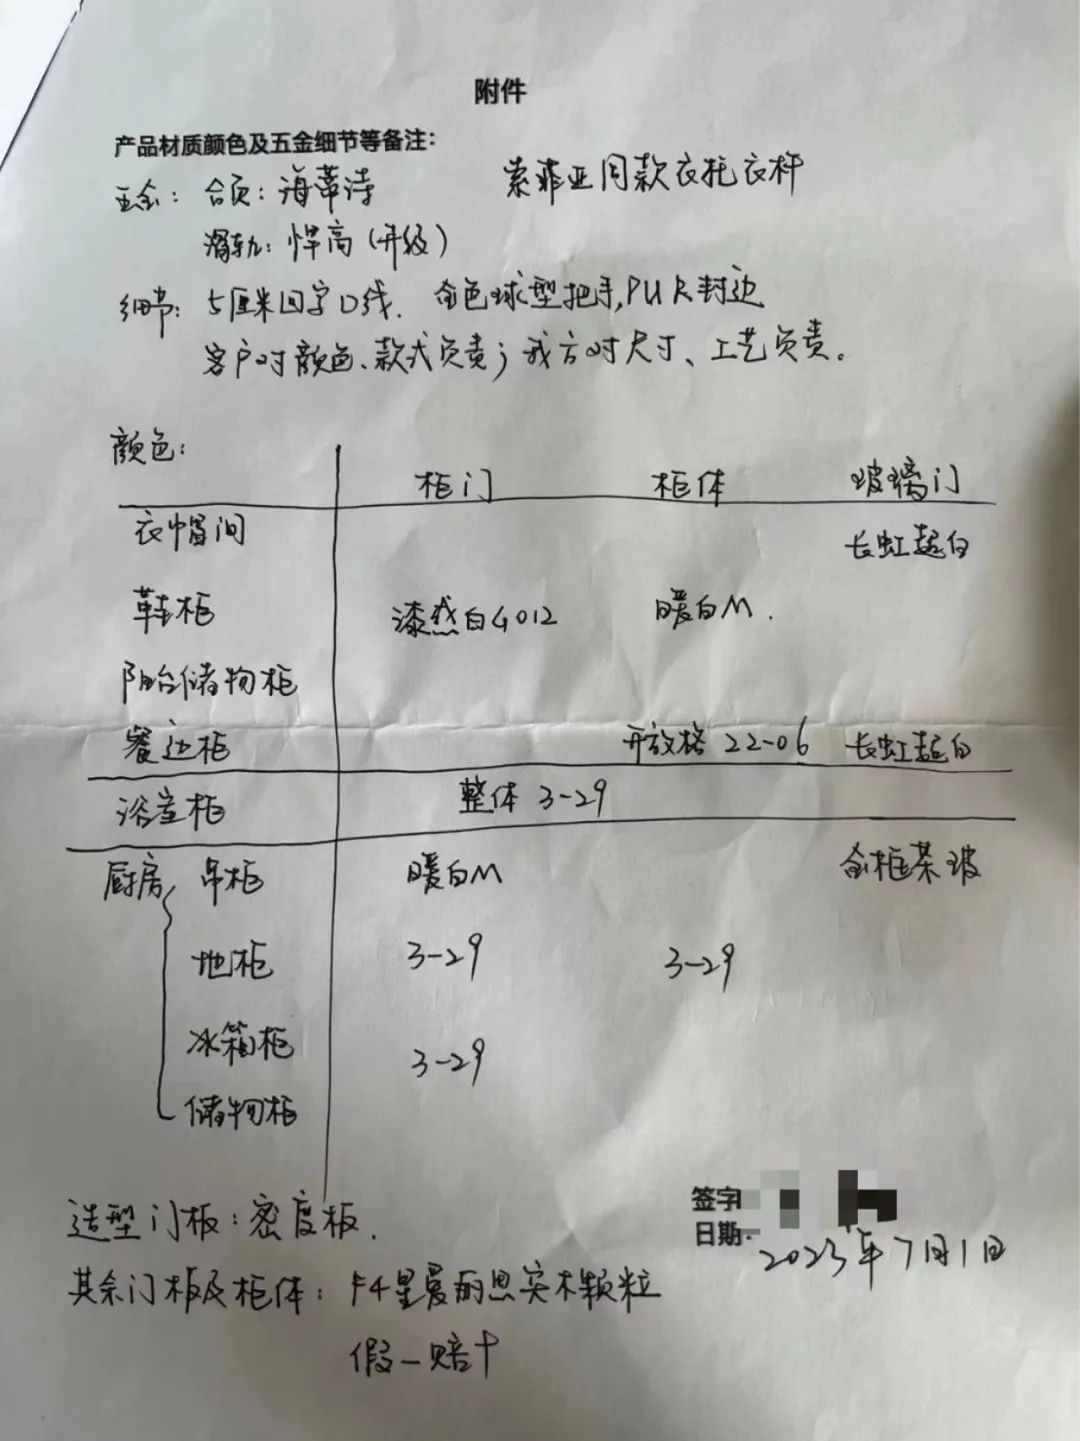 附件
产品材质颜色及五金细节等备注：
五金：合页：海蒂诗 索菲亚同款衣托衣杆
滑轨：悍高（升级）
细节：5厘米回字D线．金色球型把手，PUR封边
客户对颜色、款式负责；我方对尺寸、工艺负责。
颜色：
柜门 柜体 玻璃门
衣帽间 长虹超白
鞋柜 漆然白G012 暖白M．
阳台储物柜
餐边柜 开放格 22-06 长虹超白
浴室柜 整体 3-29
厨房 吊柜 暖白M 金框茶玻
地柜 3-29 3-29
冰箱柜 3-29
储物柜
造型门板：密度板．
签字
日期：2023年7月1日
其余门板及柜体：F4星爱丽思实木颗粒
假一赔十